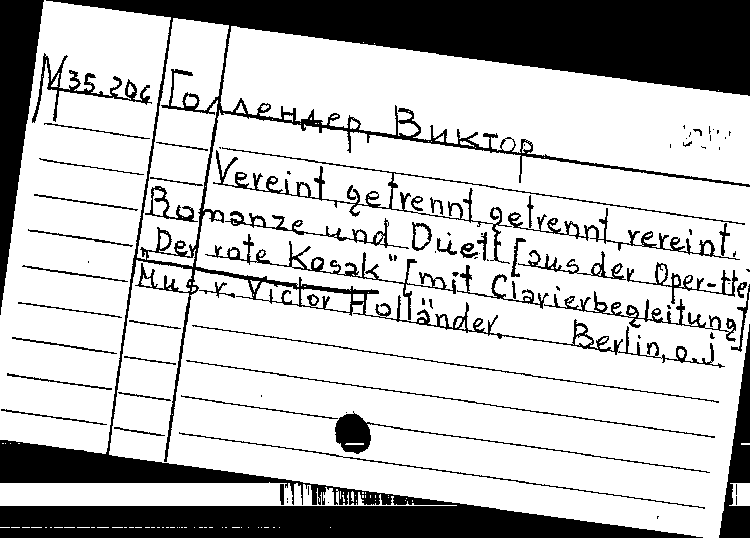 М 35.206 Голлендер, Виктор
Vereint, getrennt, getrennt, vereint.
Romanze und Duett [aus der Oper-tte
„Der rote Kosak" [mit Clavierbegleitung]
Mus. v. Victor Holländer. Berlin, o. J.